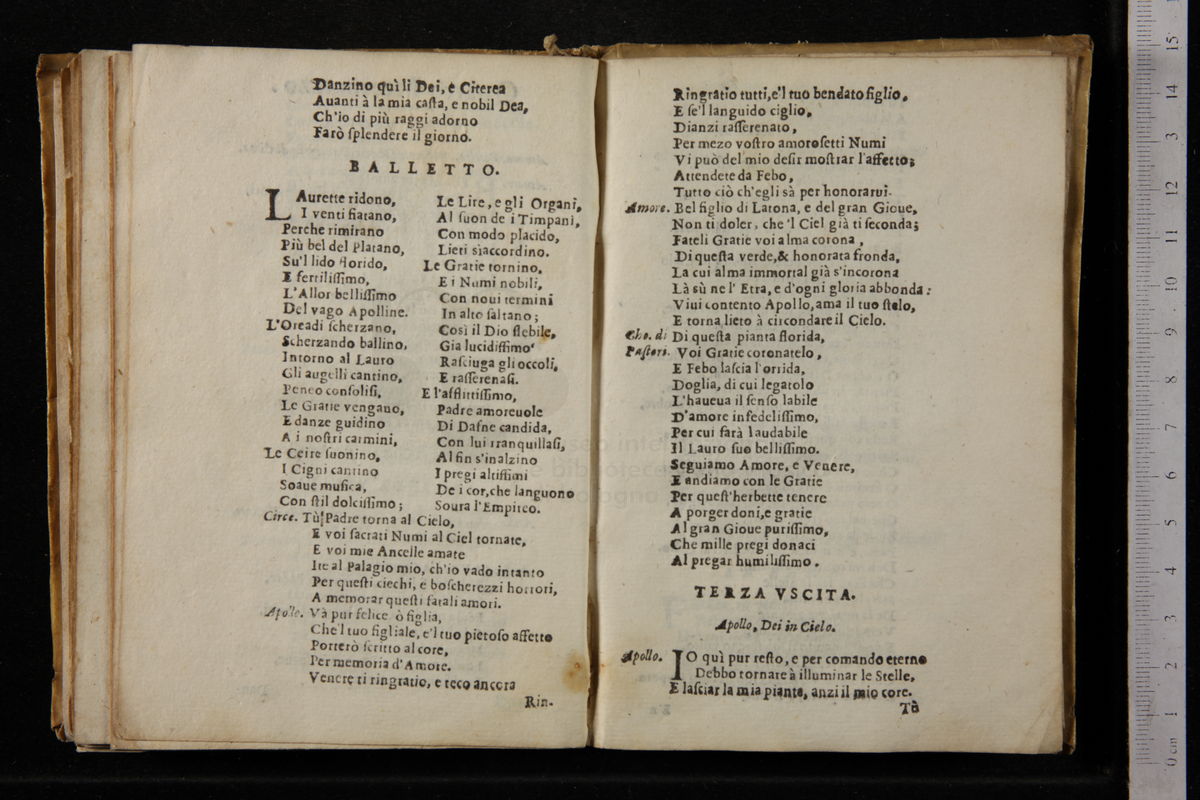 Danzino quì li Dei, e Citerea
Auanti à la mia casta, e nobil Dea,
Ch'io di più raggi adorno
Farò splendere il giorno.
BALLETTO.
LAurette ridono,
I venti fiatano,
Perche rimirano
Più bel del Platano,
Su'l lido florido,
E fertilissimo,
L'Allor bellissimo
Del vago Apolline.
L'Oreadi scherzano,
Scherzando ballino,
Intorno al Lauro
Gli augelli cantino,
Peneo consolisi,
Le Gratie vengano,
E danze guidino
A i nostri carmini,
Le Cetre suonino,
I Cigni cantino
Soaue musica,
Con stil dolcissimo;
Le Lire, e gli Organi,
Al suon de i Timpani,
Con modo placido,
Lieti sìaccordino.
Le Gratie tornino,
E i Numi nobili,
Con noui termini
In alto saltano;
Così il Dio flebile,
Gia lucidissimo
Rasciuga gli occoli,
E rasserenasi.
E l'afflittissimo,
Padre amoreuole
Di Dafne candida,
Con lui tranquillasi,
Al fin s'inalzino
I pregi altissimi
De i cor, che languono
Soura l'Empireo.
Circe. Tù Padre torna al Cielo,
E voi sacrati Numi al Ciel tornate,
E voi mie Ancelle amate
Ite al Palagio mio, ch'io vado intanto
Per questi ciechi, e boscherezzi horrori,
A memorar questi fatali amori.
Apolle. Và pur felice ò figlia,
Che'l tuo figliale, e'l tuo pietoso affetto
Porterò scritto al core,
Per memoria d'Amore.
Venere ti ringratio, e teco ancora
Rin-
Ringratio tutti, e'l tuo bendato figlio,
E se'l languido ciglio,
Dianzi rasserenato,
Per mezo vostro amorosetti Numi
Vi può del mio desir mostrar l'affetto;
Attendete da Febo,
Tutto ciò ch'egli sà per honorarui.
Amore. Bel figlio di Latona, e del gran Gioue,
Non ti doler, che 'l Ciel già ti seconda;
Fateli Gratie voi alma corona,
Di questa verde, & honorata fronda,
La cui alma immortal già s'incorona
Là sù ne l' Etra, e d'ogni gloria abbonda:
Viui contento Apollo, ama il tuo stelo,
E torna lieto à circondare il Cielo.
Cho. di Di questa pianta florida,
Pastori. Voi Gratie coronatelo,
E Febo lascia l'orrida,
Doglia, di cui legatolo
L'haueua il senso labile
D'amore infedelissimo,
Per cui farà laudabile
Il Lauro suo bellissimo.
Seguiamo Amore, e Venere,
E andiamo con le Gratie
Per quest'herbette tenere
A porger doni, e gratie
Al gran Gioue purissimo,
Che mille pregi donaci
Al pregar humilissimo.
TERZA VSCITA.
Apollo, Dei in Cielo.
Apollo. IO quì pur resto, e per comando eterno
Debbo tornare à illuminar le Stelle,
E lasciar la mia pianta, anzi il mio core.
Tù